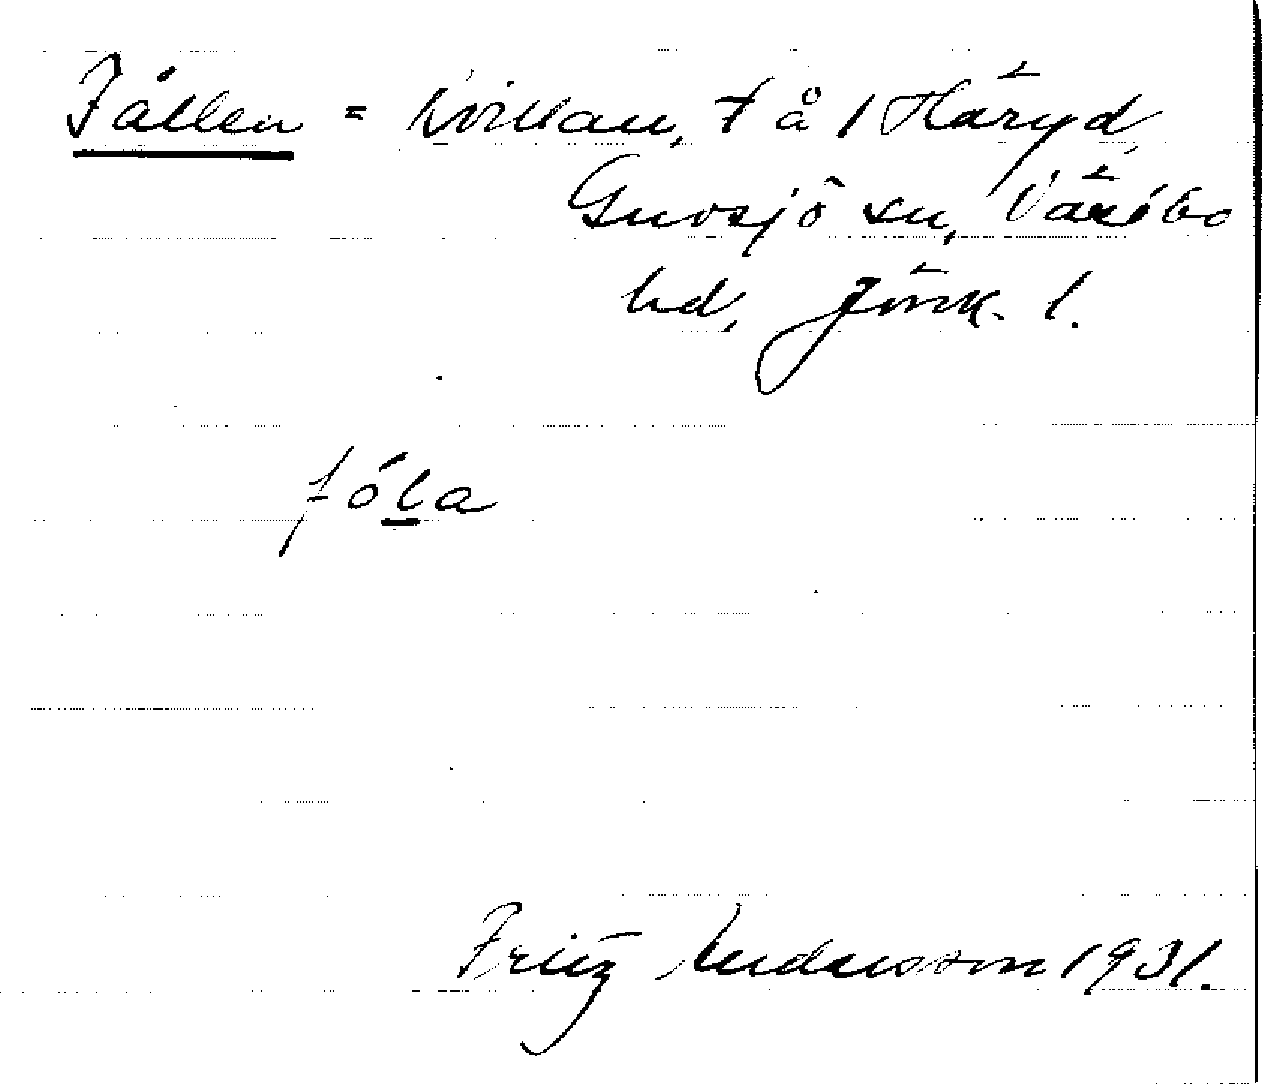 Fållen = Kvillan, t å 1 Häryd,
Gnosjö sn, Västbo
hd, Jönk. l.
fóla
Fritz Andersson 1931.